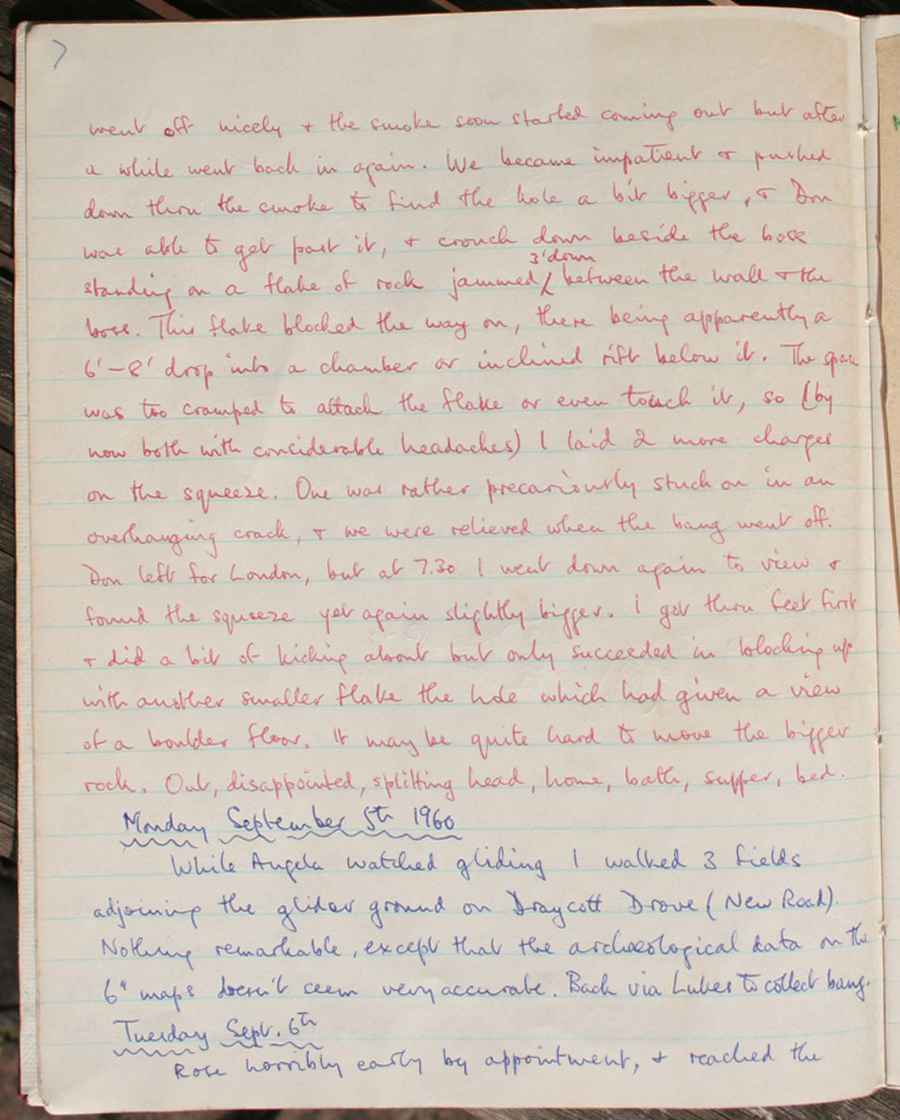 7
went off nicely & the smoke soon started coming out but after
a while went back in again. We became impatient & pushed
down thru the smoke to find the hole a bit bigger, & Don
was able to get past it, & crouch down beside the boss
3' down
standing on a flake of rock jammed between the wall & the
boss. This flake blocked the way on, there being apparently a
6'-8' drop into a chamber or inclined rift below it. The space
was too cramped to attack the flake or even touch it, so (by
now both with considerable headaches) I laid 2 more charges
on the squeeze. One was rather precariously stuck on in an
overhanging crack, & we were relieved when the bang went off.
Don left for London, but at 7.30 I went down again to view &
found the squeeze yet again slightly bigger. I got thru feet first
& did a bit of kicking about but only succeeded in blocking up
with another smaller flake the hole which had given a view
of a boulder floor. It may be quite hard to move the bigger
rock. Out, disappointed, splitting head, home, bath, supper, bed.
Monday September 5th 1960
While Angela watched gliding I walked 3 fields
adjoining the glider ground on Draycott Drove (New Road).
Nothing remarkable, except that the archæological data on the
6" maps doesn't seem very accurate. Back via Lukes to collect bang.
Tuesday Sept. 6th
Rose horribly early by appointment, & reached the